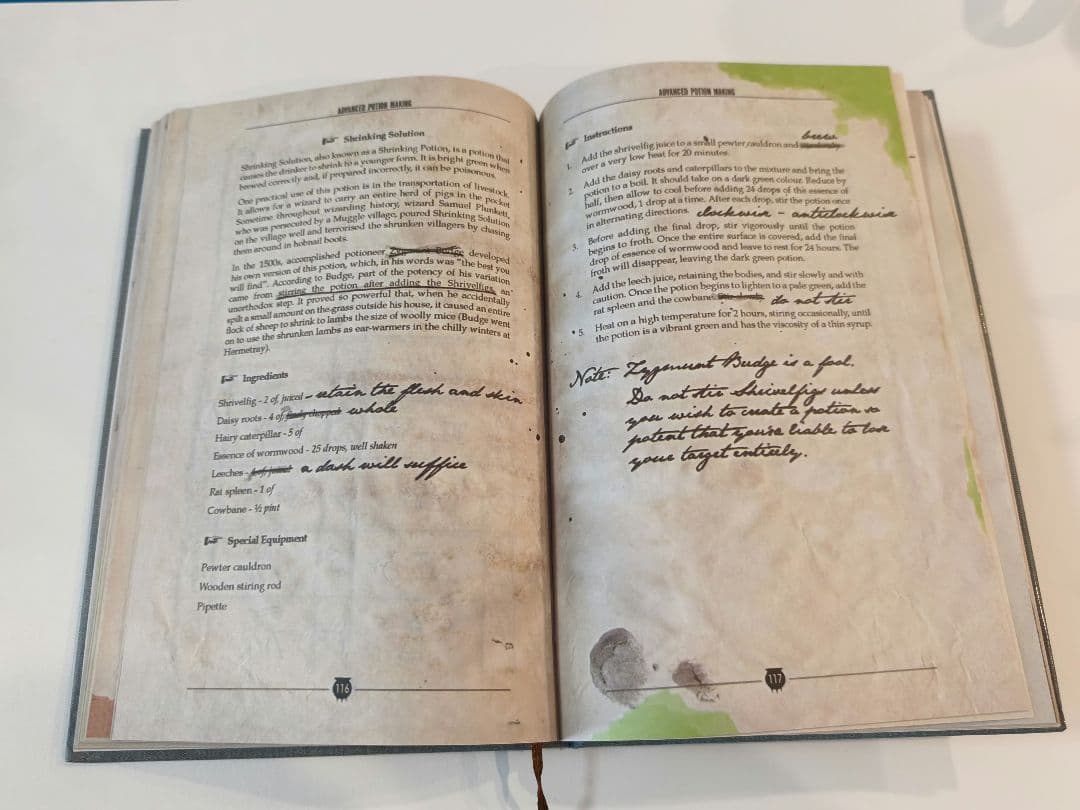 ADVANCED POTION MAKING
Shrinking Solution
Shrinking Solution, also known as a Shrinking Potion, is a potion that
causes the drinker to shrink to a younger form. It is bright green when
brewed correctly and, if prepared incorrectly, it can be poisonous.
One practical use of this potion is in the transportation of livestock.
It allows for a wizard to carry an entire herd of pigs in the pocket
Sometime throughout wizarding history, wizard Samuel Plunkett,
who was persecuted by a Muggle village, poured Shrinking Solution
on the village well and terrorised the shrunken villagers by chasing
them around in hobnail boots.
In the 1500s, accomplished potioneer Zygmunt Budge developed
his own version of this potion, which, in his words was "the best you
will find". According to Budge, part of the potency of his variation
came from stirring the potion after adding the Shrivelfigs, an
unorthodox step. It proved so powerful that, when he accidentally
spilt a small amount on the grass outside his house, it caused an entire
flock of sheep to shrink to lambs the size of woolly mice (Budge went
on to use the shrunken lambs as ear-warmers in the chilly winters at
Hermetray).
Ingredients
Shrivelfig - 2 of, juiced - retain the flesh and skin
Daisy roots - 4 of, finely chopped whole
Hairy caterpillar - 5 of
Essence of wormwood - 25 drops, well shaken
Leeches - a dash will suffice
Rat spleen - 1 of
Cowbane - ½ pint
Special Equipment
Pewter cauldron
Wooden stiring rod
Pipette
116
ADVANCED POTION MAKING
Instructions
brew
1. Add the shrivelfig juice to a small pewter cauldron and
over a very low heat for 20 minutes.
2. Add the daisy roots and caterpillars to the mixture and bring the
potion to a boil. It should take on a dark green colour. Reduce by
half, then allow to cool before adding 24 drops of the essence of
wormwood, 1 drop at a time. After each drop, stir the potion once
in alternating directions. clockwise - anticlockwise
3. Before adding, the final drop, stir vigorously until the potion
begins to froth. Once the entire surface is covered, add the final
drop of essence of wormwood and leave to rest for 24 hours. The
froth will disappear, leaving the dark green potion.
4. Add the leech juice, retaining the bodies, and stir slowly and with
caution. Once the potion begins to lighten to a pale green, add the
rat spleen and the cowbane. do not stir
5. Heat on a high temperature for 2 hours, stiring occasionally, until
the potion is a vibrant green and has the viscosity of a thin syrup.
Note: Zygmunt Budge is a fool.
Do not stir Shrivelfigs unless
you wish to create a potion so
potent that you're liable to lose
your target entirely.
117